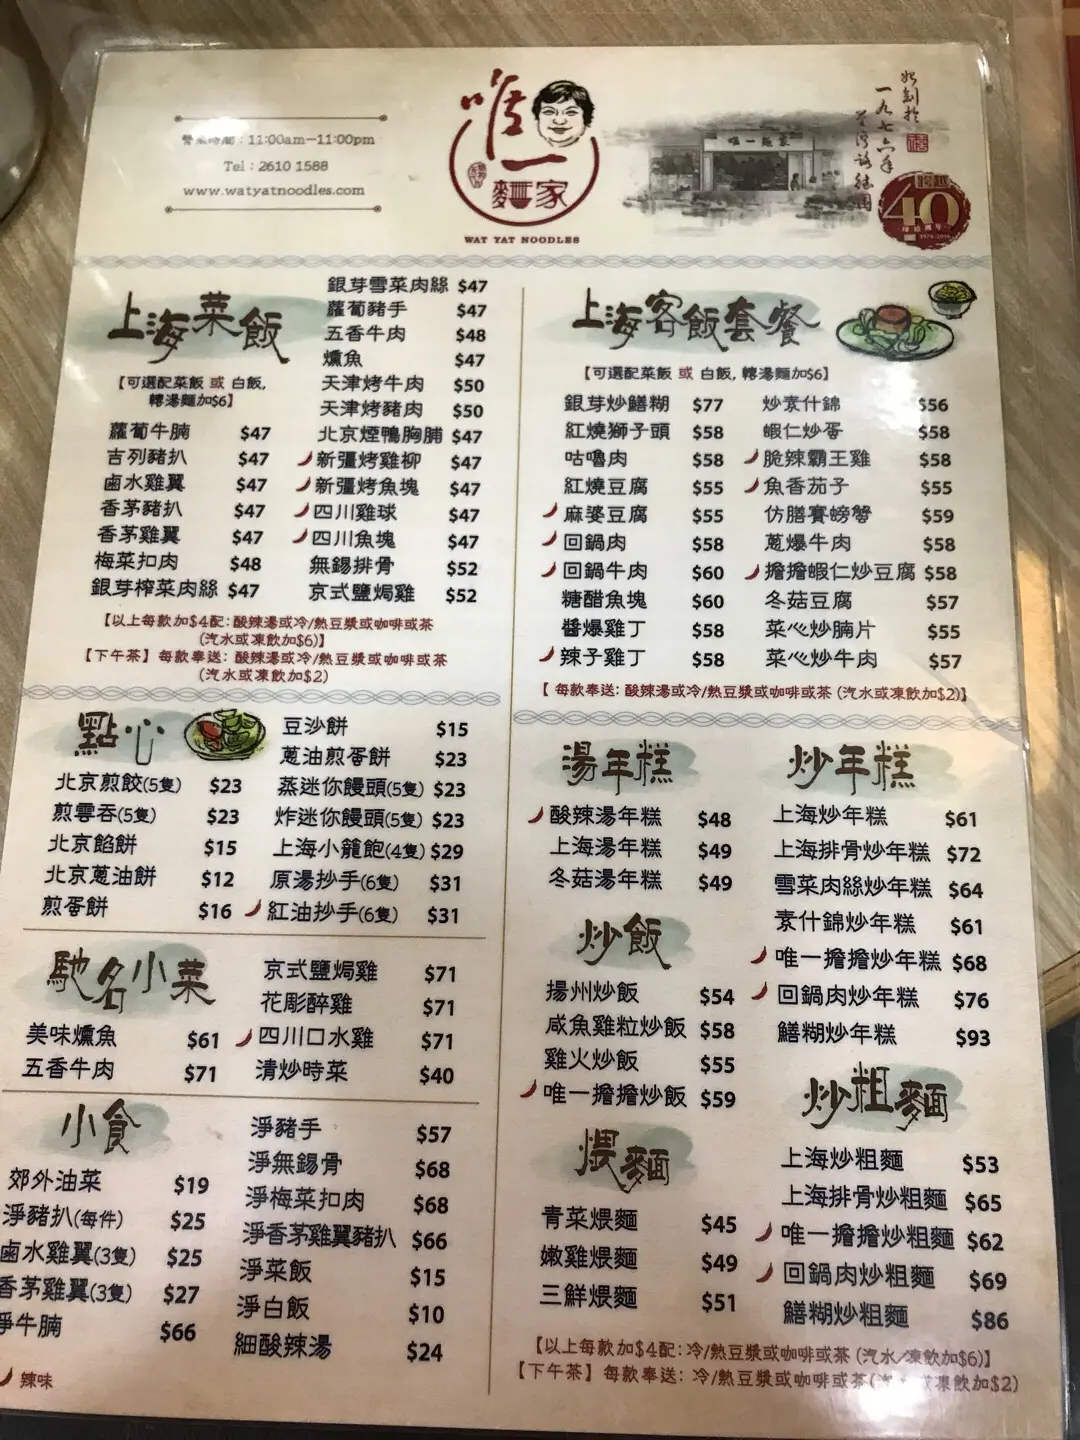 營業時間：11:00am—11:00pm
Tel：2610 1588
www.watyatnoodles.com
唯一
麵家
WAT YAT NOODLES
唯一麵家
始創於
一九七六年
40
1976-2016
上海菜飯
【可選配菜飯 或 白飯,
轉湯麵加$6】
蘿蔔牛腩 $47
吉列豬扒 $47
鹵水雞翼 $47
香茅豬扒 $47
香茅雞翼 $47
梅菜扣肉 $48
銀芽榨菜肉絲 $47
銀芽雪菜肉絲 $47
蘿蔔豬手 $47
五香牛肉 $48
燻魚 $47
天津烤牛肉 $50
天津烤豬肉 $50
北京煙鴨胸脯 $47
新彊烤雞柳 $47
新彊烤魚塊 $47
四川雞球 $47
四川魚塊 $47
無錫排骨 $52
京式鹽焗雞 $52
【以上每款加$4配：酸辣湯或冷/熱豆漿或咖啡或茶
(汽水或凍飲加$6)】
【下午茶】每款奉送：酸辣湯或冷/熱豆漿或咖啡或茶
(汽水或凍飲加$2)
上海客飯套餐
【可選配菜飯 或 白飯, 轉湯麵加$6】
銀芽炒鱔糊 $77
紅燒獅子頭 $58
咕嚕肉 $58
紅燒豆腐 $55
麻婆豆腐 $55
回鍋肉 $58
回鍋牛肉 $60
糖醋魚塊 $60
醬爆雞丁 $58
辣子雞丁 $58
炒素什錦 $56
蝦仁炒蛋 $58
脆辣霸王雞 $58
魚香茄子 $55
仿膳賽螃蟹 $59
蔥爆牛肉 $58
擔擔蝦仁炒豆腐 $58
冬菇豆腐 $57
菜心炒腩片 $55
菜心炒牛肉 $57
【 每款奉送：酸辣湯或冷/熱豆漿或咖啡或茶 (汽水或凍飲加$2)】
點心
北京煎餃(5隻) $23
煎雲吞(5隻) $23
北京餡餅 $15
北京蔥油餅 $12
煎蛋餅 $16
豆沙餅 $15
蔥油煎蛋餅 $23
蒸迷你饅頭(5隻) $23
炸迷你饅頭(5隻) $23
上海小籠飽(4隻) $29
原湯抄手(6隻) $31
紅油抄手(6隻) $31
馳名小菜
美味燻魚 $61
五香牛肉 $71
京式鹽焗雞 $71
花彫醉雞 $71
四川口水雞 $71
清炒時菜 $40
小食
郊外油菜 $19
淨豬扒(每件) $25
鹵水雞翼(3隻) $25
香茅雞翼(3隻) $27
淨牛腩 $66
淨豬手 $57
淨無錫骨 $68
淨梅菜扣肉 $68
淨香茅雞翼豬扒 $66
淨菜飯 $15
淨白飯 $10
細酸辣湯 $24
辣味
湯年糕
酸辣湯年糕 $48
上海湯年糕 $49
冬菇湯年糕 $49
炒飯
揚州炒飯 $54
咸魚雞粒炒飯 $58
雞火炒飯 $55
唯一擔擔炒飯 $59
煨麵
青菜煨麵 $45
嫩雞煨麵 $49
三鮮煨麵 $51
炒年糕
上海炒年糕 $61
上海排骨炒年糕 $72
雪菜肉絲炒年糕 $64
素什錦炒年糕 $61
唯一擔擔炒年糕 $68
回鍋肉炒年糕 $76
鱔糊炒年糕 $93
炒粗麵
上海炒粗麵 $53
上海排骨炒粗麵 $65
唯一擔擔炒粗麵 $62
回鍋肉炒粗麵 $69
鱔糊炒粗麵 $86
【以上每款加$4配：冷/熱豆漿或咖啡或茶 (汽水/凍飲加$6)】
【下午茶】每款奉送：冷/熱豆漿或咖啡或茶(汽水或凍飲加$2)